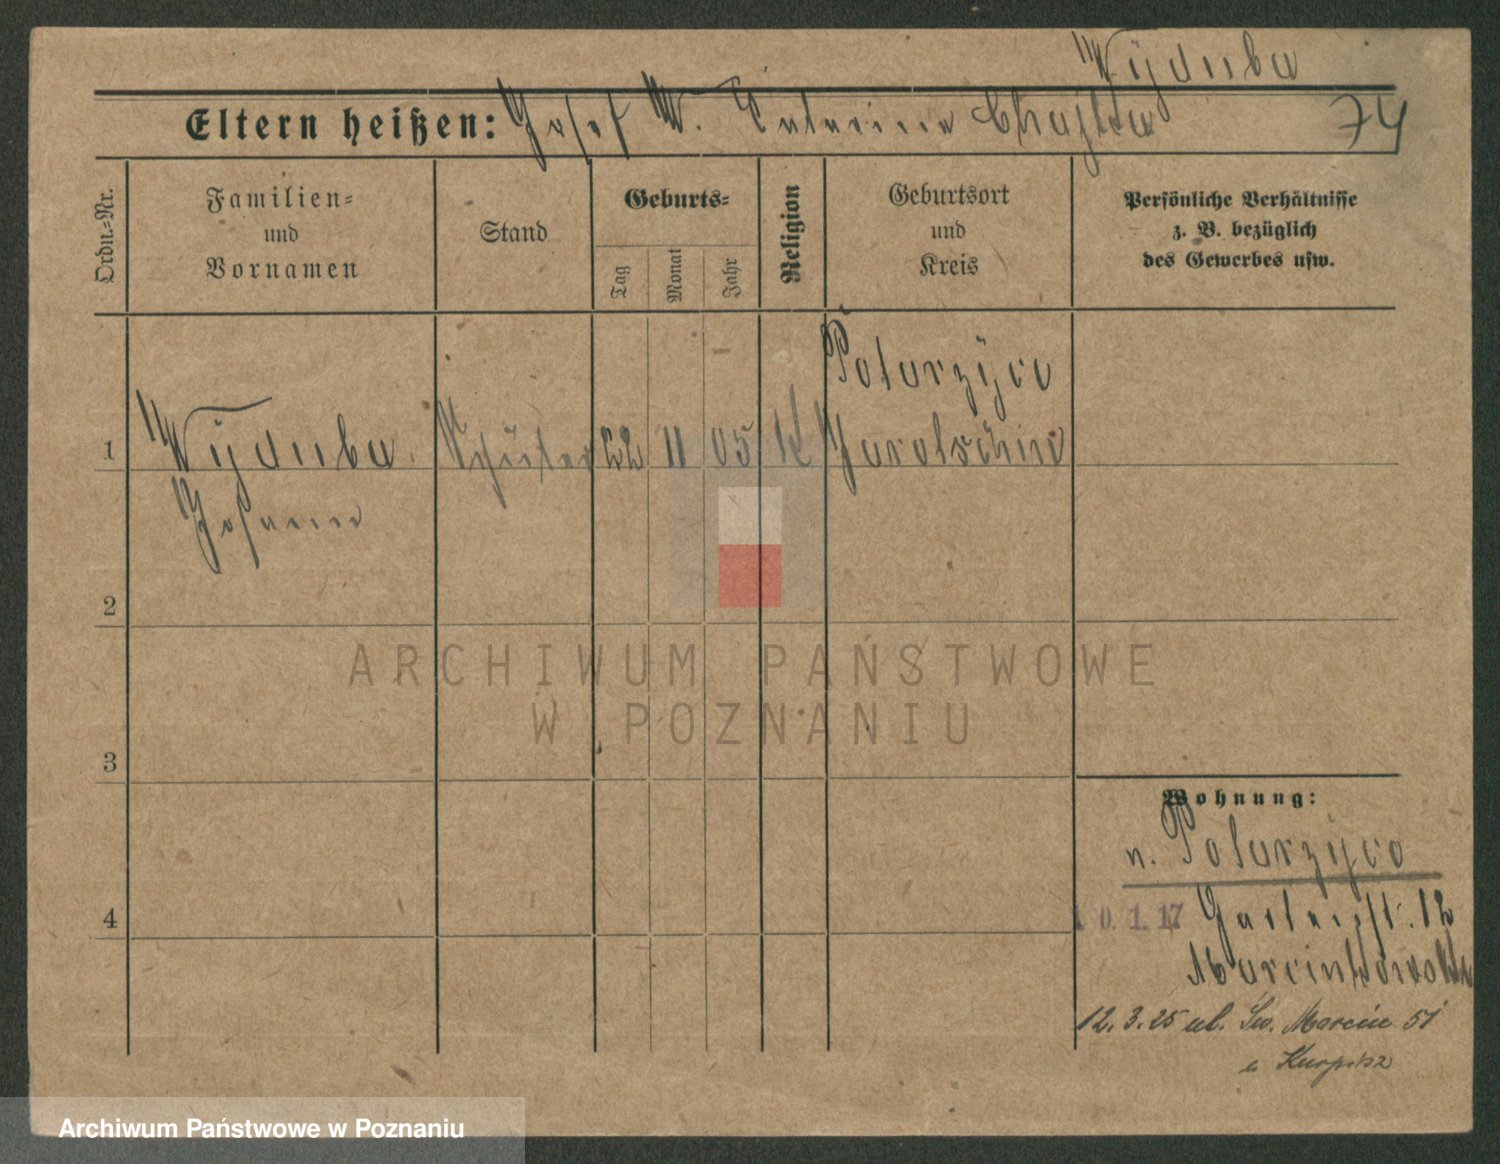 Wyduba
Eltern heißen: Josef W. Katarina Chojka
74
Ordn.-Nr.
Familien-
und
Vornamen
Stand
Geburts-
Tag
Monat
Jahr
Religion
Geburtsort
und
Kreis
Persönliche Verhältnisse
z. B. bezüglich
des Gewerbes usw.
1
Wyduba
Johann
Schüler
22
11
05
K
Potarzyce
Jarotschin
2
3
4
Wohnung:
n. Potarzyce
0. 1. 17 Gartenstr. 12
Marcinkowska
12. 3. 25 ul. Św. Marcin 51
u Kurpisz
ARCHIWUM PAŃSTWOWE
W POZNANIU
Archiwum Państwowe w Poznaniu